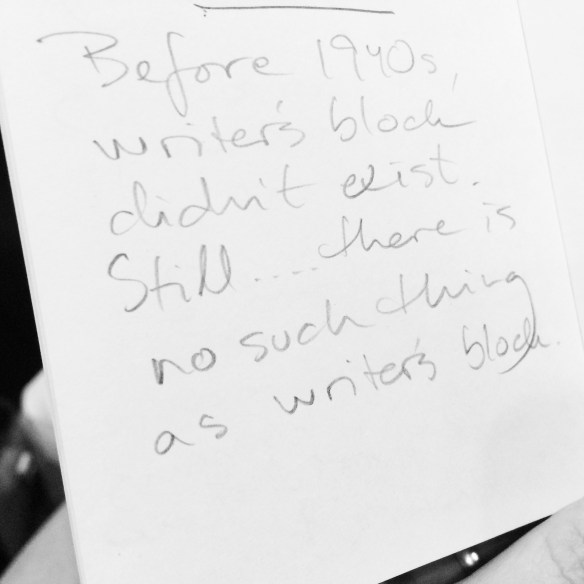 Before 1940s,
writer's block
didn't exist.
Still.....there is
no such thing
as writer's block.